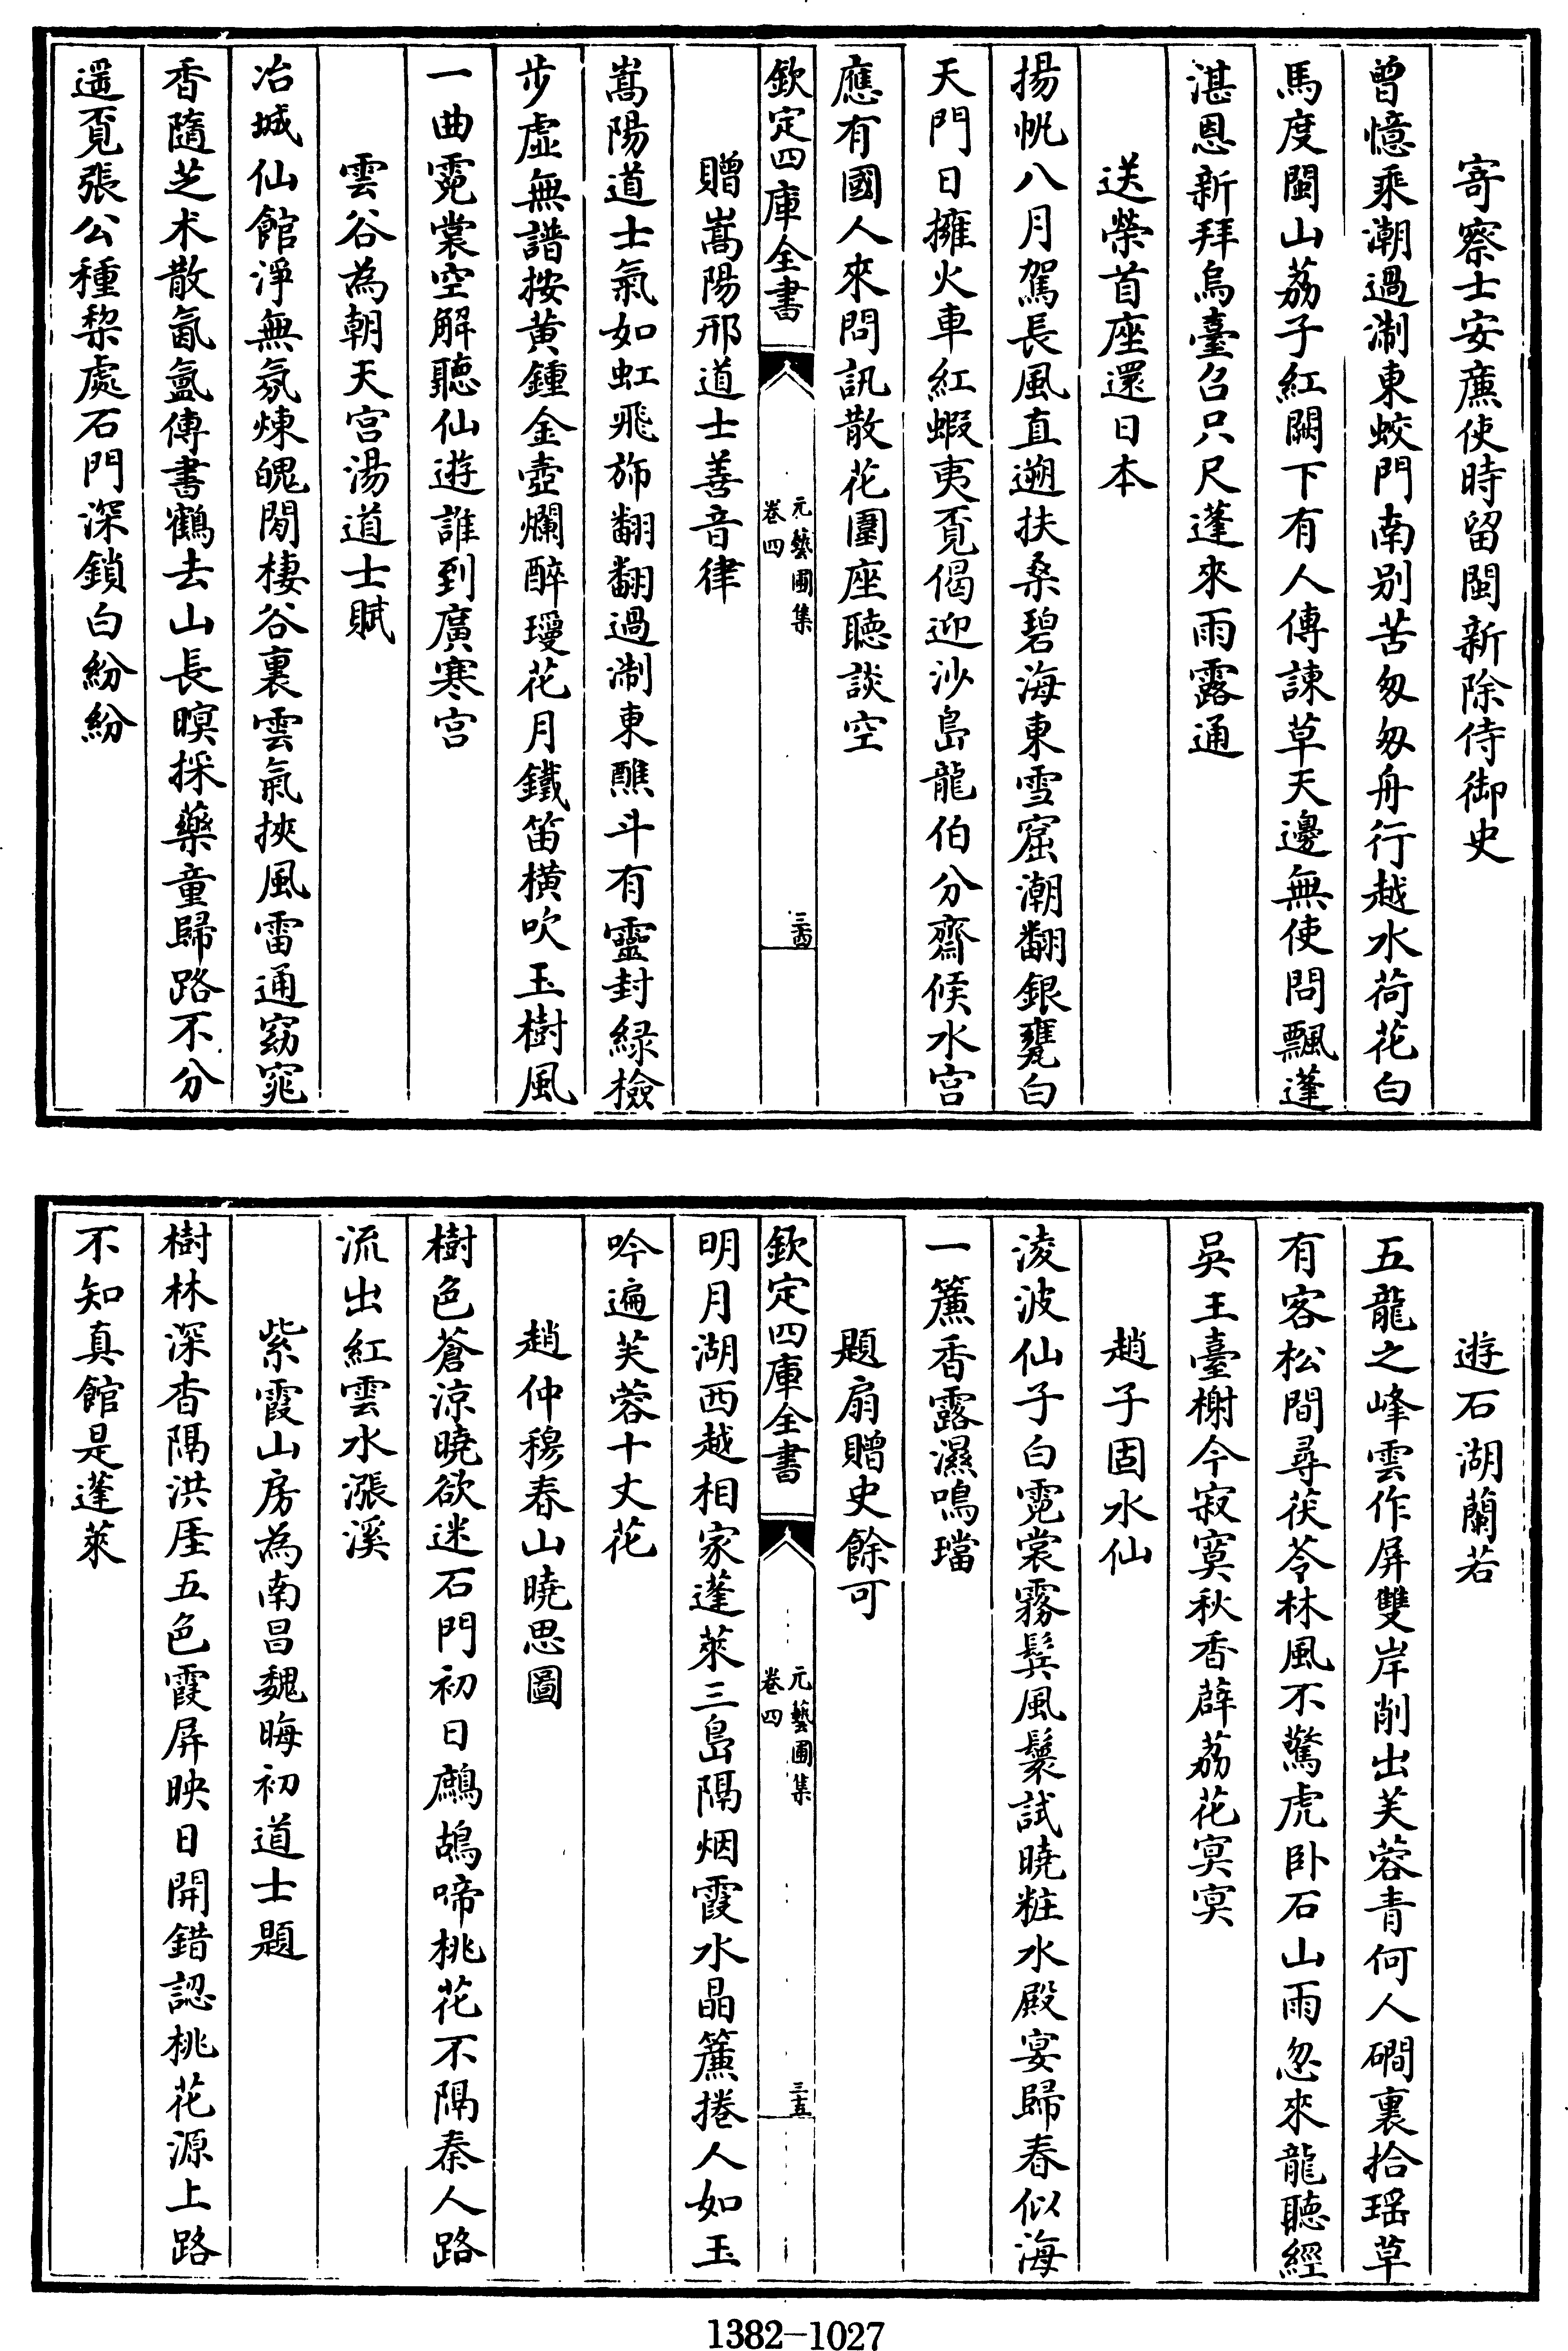 寄察士安㢘使時留閩新除侍御史
曾憶乘潮過淛東蛟門南别苦匆匆舟行越水荷花白
馬度閩山荔子紅闕下有人傳諫草天邊無使問飄蓬
湛恩新拜烏臺召只尺蓬來雨露通
送榮首座還日本
揚帆八月駕長風直遡扶桑碧海東雪窟潮翻銀甕白
天門日擁火車紅蝦夷覓偈迎沙島龍伯分齋候水宮
應有國人來問訊散花圍座聽談空
欽定四庫全書
元藝圃集
卷四
三四
贈嵩陽邢道士善音律
嵩陽道士氣如虹飛斾翻翻過淛東醮斗有靈封緑檢
步虛無譜按黄鍾金壺爛醉瓊花月鐵笛橫吹玉樹風
一曲霓裳空解聽仙遊誰到廣寒宮
雲谷為朝天宮湯道士賦
冶城仙館淨無氛煉魄閒棲谷裏雲氣挾風雷通窈窕
香隨芝术散氤氳傳書鶴去山長暝採藥童歸路不分
遥覓張公種棃處石門深鎖白紛紛
遊石湖蘭若
五龍之峰雲作屏雙岸削出芙蓉青何人磵裏拾瑶草
有客松間尋茯苓林風不驚虎卧石山雨忽來龍聽經
吳王臺榭今寂寞秋香薜荔花冥冥
趙子固水仙
淩波仙子白霓裳霧鬂風鬟試曉粧水殿宴歸春似海
一簾香露濕鳴璫
題扇贈史餘可
欽定四庫全書
元藝圃集
卷四
三五
明月湖西越相家蓬萊三島隔烟霞水晶簾捲人如玉
吟遍芙蓉十丈花
趙仲穆春山曉思圖
樹色蒼涼曉欲迷石門初日鷓鴣啼桃花不隔秦人路
流出紅雲水漲溪
紫霞山房為南昌魏晦初道士題
樹林深杳隔洪厓五色霞屏映日開錯認桃花源上路
不知真館是蓬萊
1382-1027